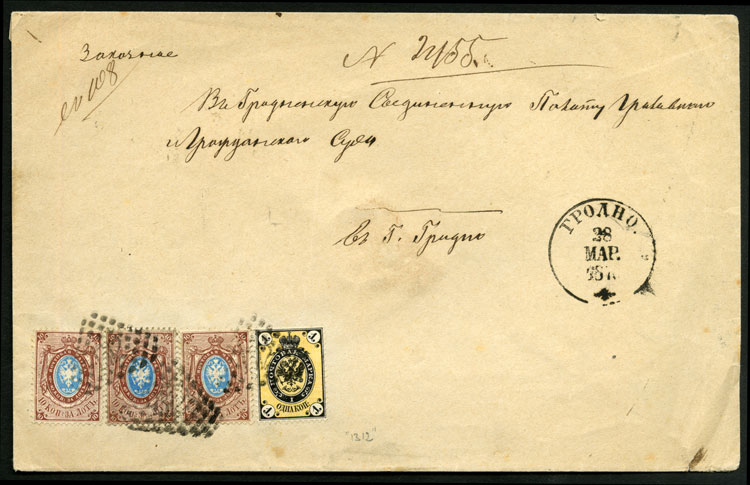 Заказное
N 2455.
№ 108
Въ Гродненскую Соединенную Палату Уголовнаго
и Гражданскаго Суда
въ Г. Гродно
ГРОДНО.
28
МАР.
10 КОП. ЗА ЛОТЪ.
10 КОП. ЗА ЛОТЪ.
10 КОП. ЗА ЛОТЪ.
1 1
ПОЧТОВАЯ МАРКА
1
ОДНА КОП.
1 1
"1212"